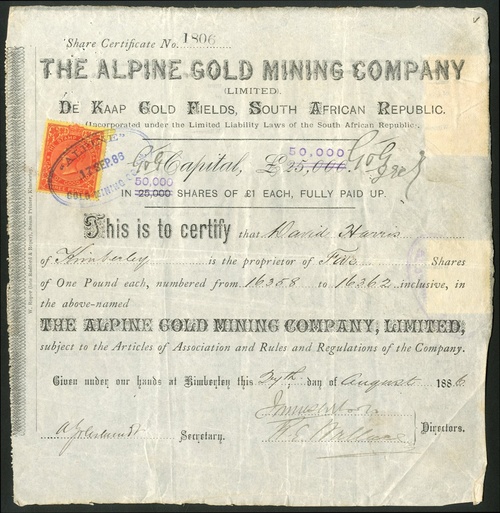 Share Certificate No. 1806
THE ALPINE GOLD MINING COMPANY
(LIMITED).
DE KAAP GOLD FIELDS, SOUTH AFRICAN REPUBLIC.
(Incorporated under the Limited Liability Laws of the South African Republic.)
50,000
Capital, £25,000
50,000
IN 25,000 SHARES OF £1 EACH, FULLY PAID UP.
"ALPINE"
SEP. 86
GOLD MINING
This is to certify that David Harris
of Kimberley is the proprietor of Five Shares
of One Pound each, numbered from 16358 to 16362 inclusive, in
the above-named
THE ALPINE GOLD MINING COMPANY, LIMITED,
subject to the Articles of Association and Rules and Regulations of the Company.
Given under our hands at Kimberley this 27th day of August 1886
Secretary.
Directors.